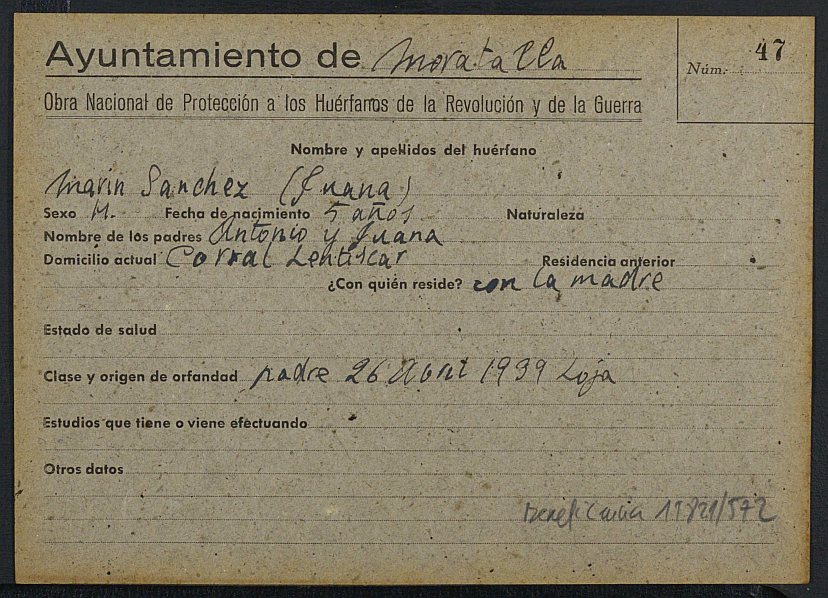 Ayuntamiento de Moratalla
Núm. 47
Obra Nacional de Protección a los Huérfanos de la Revolución y de la Guerra
Nombre y apellidos del huérfano
Marin Sanchez (Juana)
Sexo H. Fecha de nacimiento 5 años Naturaleza
Nombre de los padres Antonio y Juana
Domicilio actual Corral Lentiscar Residencia anterior
¿Con quién reside? con la madre
Estado de salud
Clase y origen de orfandad padre 26 Abril 1939 Loja
Estudios que tiene o viene efectuando
Otros datos
Beneficencia 11821/572